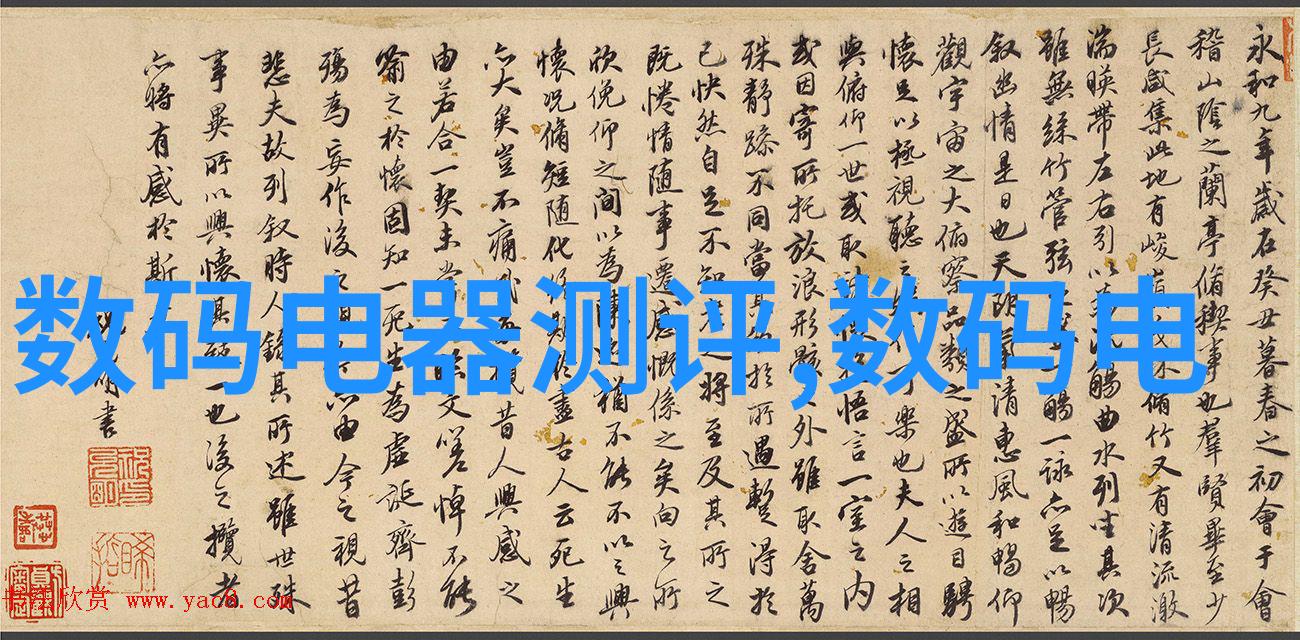 永和九年歲在癸丑暮春之初會于會
稽山陰之蘭亭脩稧事也羣賢畢至少
長咸集此地有峻
脩竹又有清流激
湍暎帶左右引以
觴曲水列坐其次
雖無絲竹管弦
觴一詠亦足以暢
叙幽情是日也天朗
清惠風和暢仰
觀宇宙之大俯察品類之盛所以遊目騁
懷足以極視聽之
樂也夫人之相
與俯仰一世或取
悟言一室之內
或因寄所托放浪形骸
外雖取舍萬
殊靜躁不同當其
於所遇蹔得於
己快然自足不知
之將至及其所之
既惓情随事遷感慨係之矣向之所
欣俛仰之間以為陳
猶不能不以之興
懷況脩短随化
盡古人云死生
亦大矣豈不痛
昔人興感之
由若合一契未嘗
文嗟悼不能
喻之於懷固知一死生為虛誕齊彭
殤為妄作後
亦由今之視昔
悲夫故列叙時人錄其所述雖世殊
事異所以興懷其
一也後之攬者
亦將有感於斯
書
数码电器测评,数码电
欣赏 www.yac8.com